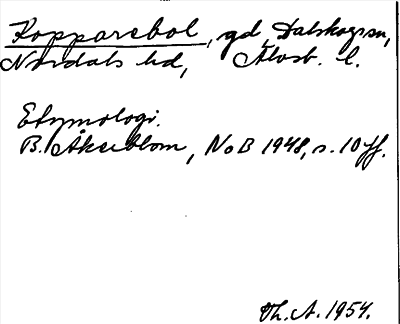 Kopparebol, gd, Dalskogs sn,
Nordals hd, Älvsb. l.
Etymologi.
B. Åkerblom, NoB 1948, s. 10 ff.
Th. A. 1954.